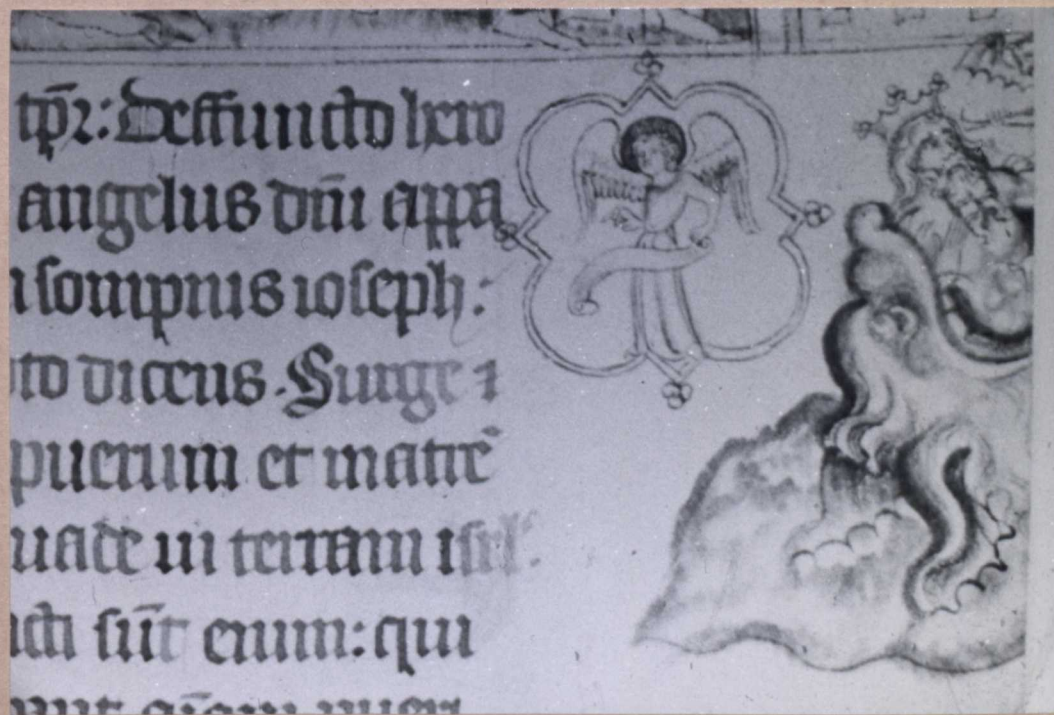 tp̄ꝛ: Deffuncto hero
angelus dn̄i appa
sompnis ioseph:
dicens. Surge ⁊
puerum et matrē
uade in terram isrl̄:
sūt enim: qui